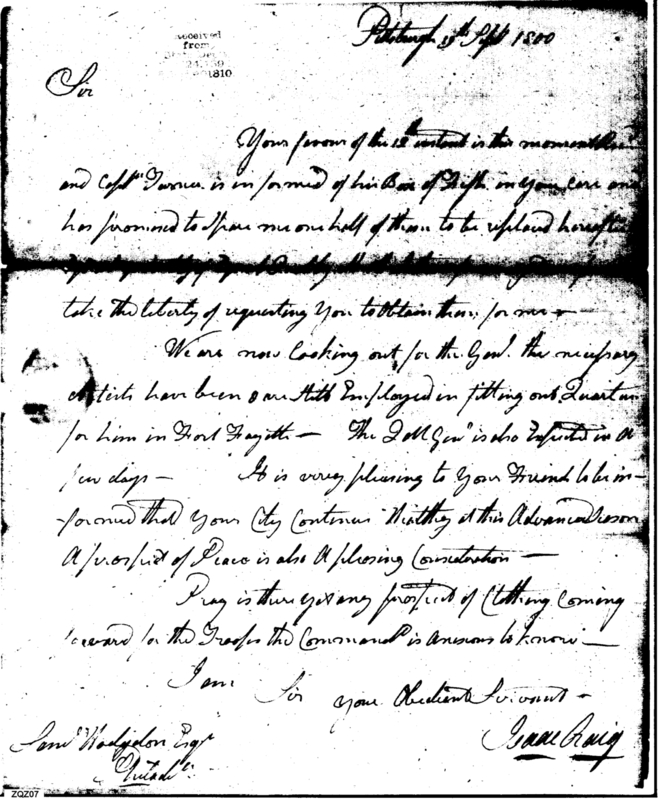 Pittsburgh Sept 1800
received
from
1810
Sir
Your favour of the 12th instant is this moment
and Capt. Turner is informed of his Box of in your care and
has promised to spare me one half of them to be replaced hereafter
take the liberty of requesting You to obtain them for me —
We are now looking out for the Genl. the necessary
Artists have been & are still Employed in fitting out Quarters
for him in Fort Fayette — The Genl is also Expected in a
few days — It is very pleasing to Your Friends to be in-
-formed that your City Continues Healthy at this Advanced season
A prospect of Peace is also A pleasing Consideration —
Pray is there yet any prospect of Clothing Coming
forward for the Troops the Commandt is anxious to know —
I am Sir your Obedient Servant —
Isaac Craig
Saml Hodgdon Esqr
Philada
ZQZ07